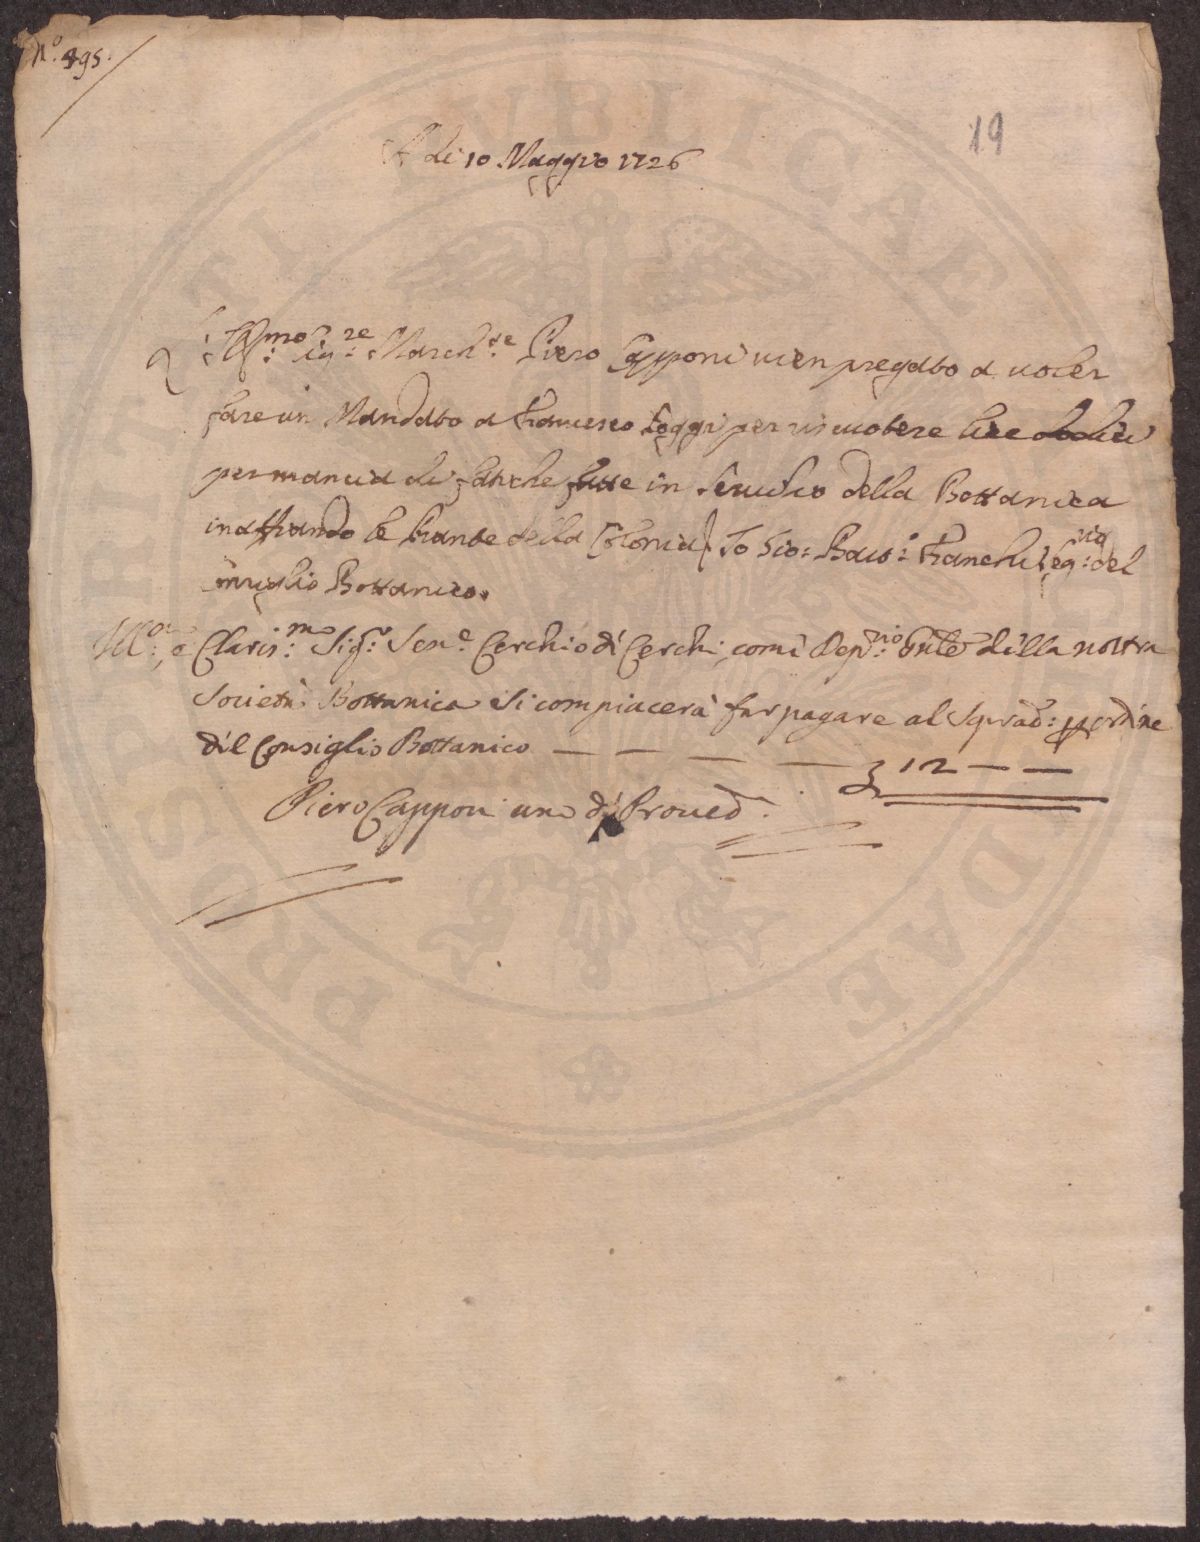 N.º 495.
19
A di 10 Maggio 1726
L'Ill.mo Sig.re March.se Piero Capponi vien pregato a voler
fare un Mandato a Francesco Foggi per riscuotere lire dodici
per mancia di fatiche fatte in servizio della Bottanica
inaffiando le piante della Colonia. Io Gio: Batt.a Franchi Seg.rio del
Consiglio Bottanico.
Ill.mo, e Claris.mo Sig.r Sen.e Cerchio di Cerchi, come Dep.rio Gnle della nostra
Società Bottanica si compiacerà far pagare al Soprad: p ordine
del Consiglio Bottanico — — — — £ 12 — —
Piero Capponi uno de Proved.
PROSPERITATI PUBLICAE